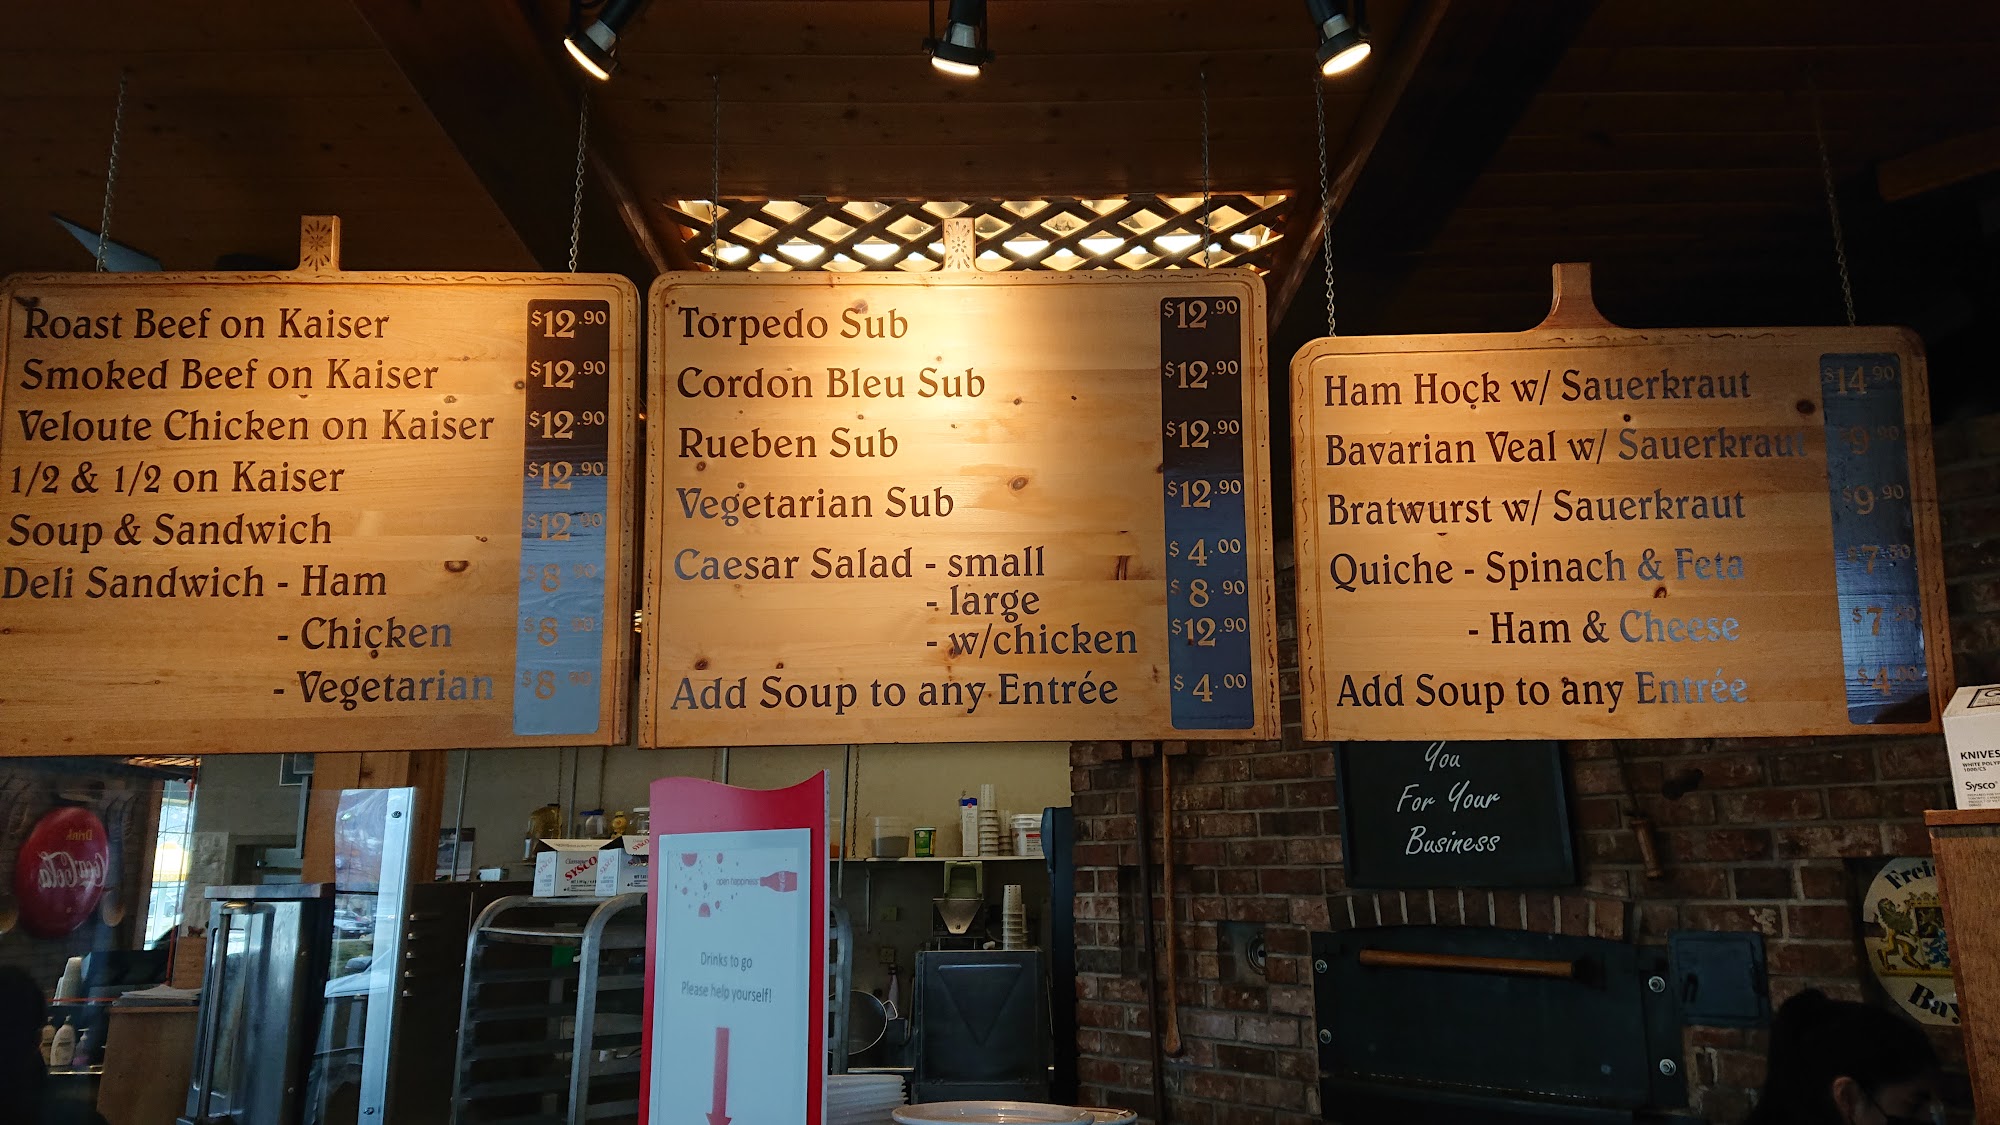 Roast Beef on Kaiser $12.90
Smoked Beef on Kaiser $12.90
Veloute Chicken on Kaiser $12.90
1/2 & 1/2 on Kaiser $12.90
Soup & Sandwich $12.90
Deli Sandwich - Ham $8.90
- Chicken $8.90
- Vegetarian $8.90
Torpedo Sub $12.90
Cordon Bleu Sub $12.90
Rueben Sub $12.90
Vegetarian Sub $12.90
Caesar Salad - small $4.00
- large $8.90
- w/chicken $12.90
Add Soup to any Entrée $4.00
Ham Hock w/ Sauerkraut $14.90
Bavarian Veal w/ Sauerkraut $9.90
Bratwurst w/ Sauerkraut $9.90
Quiche - Spinach & Feta $7.50
- Ham & Cheese $7.50
Add Soup to any Entrée $4.00
You
For Your
Business
KNIVES
Sysco
SYSCO
Drink
Coca-Cola
open happiness
Drinks to go
Please help yourself!
Freis
Bay